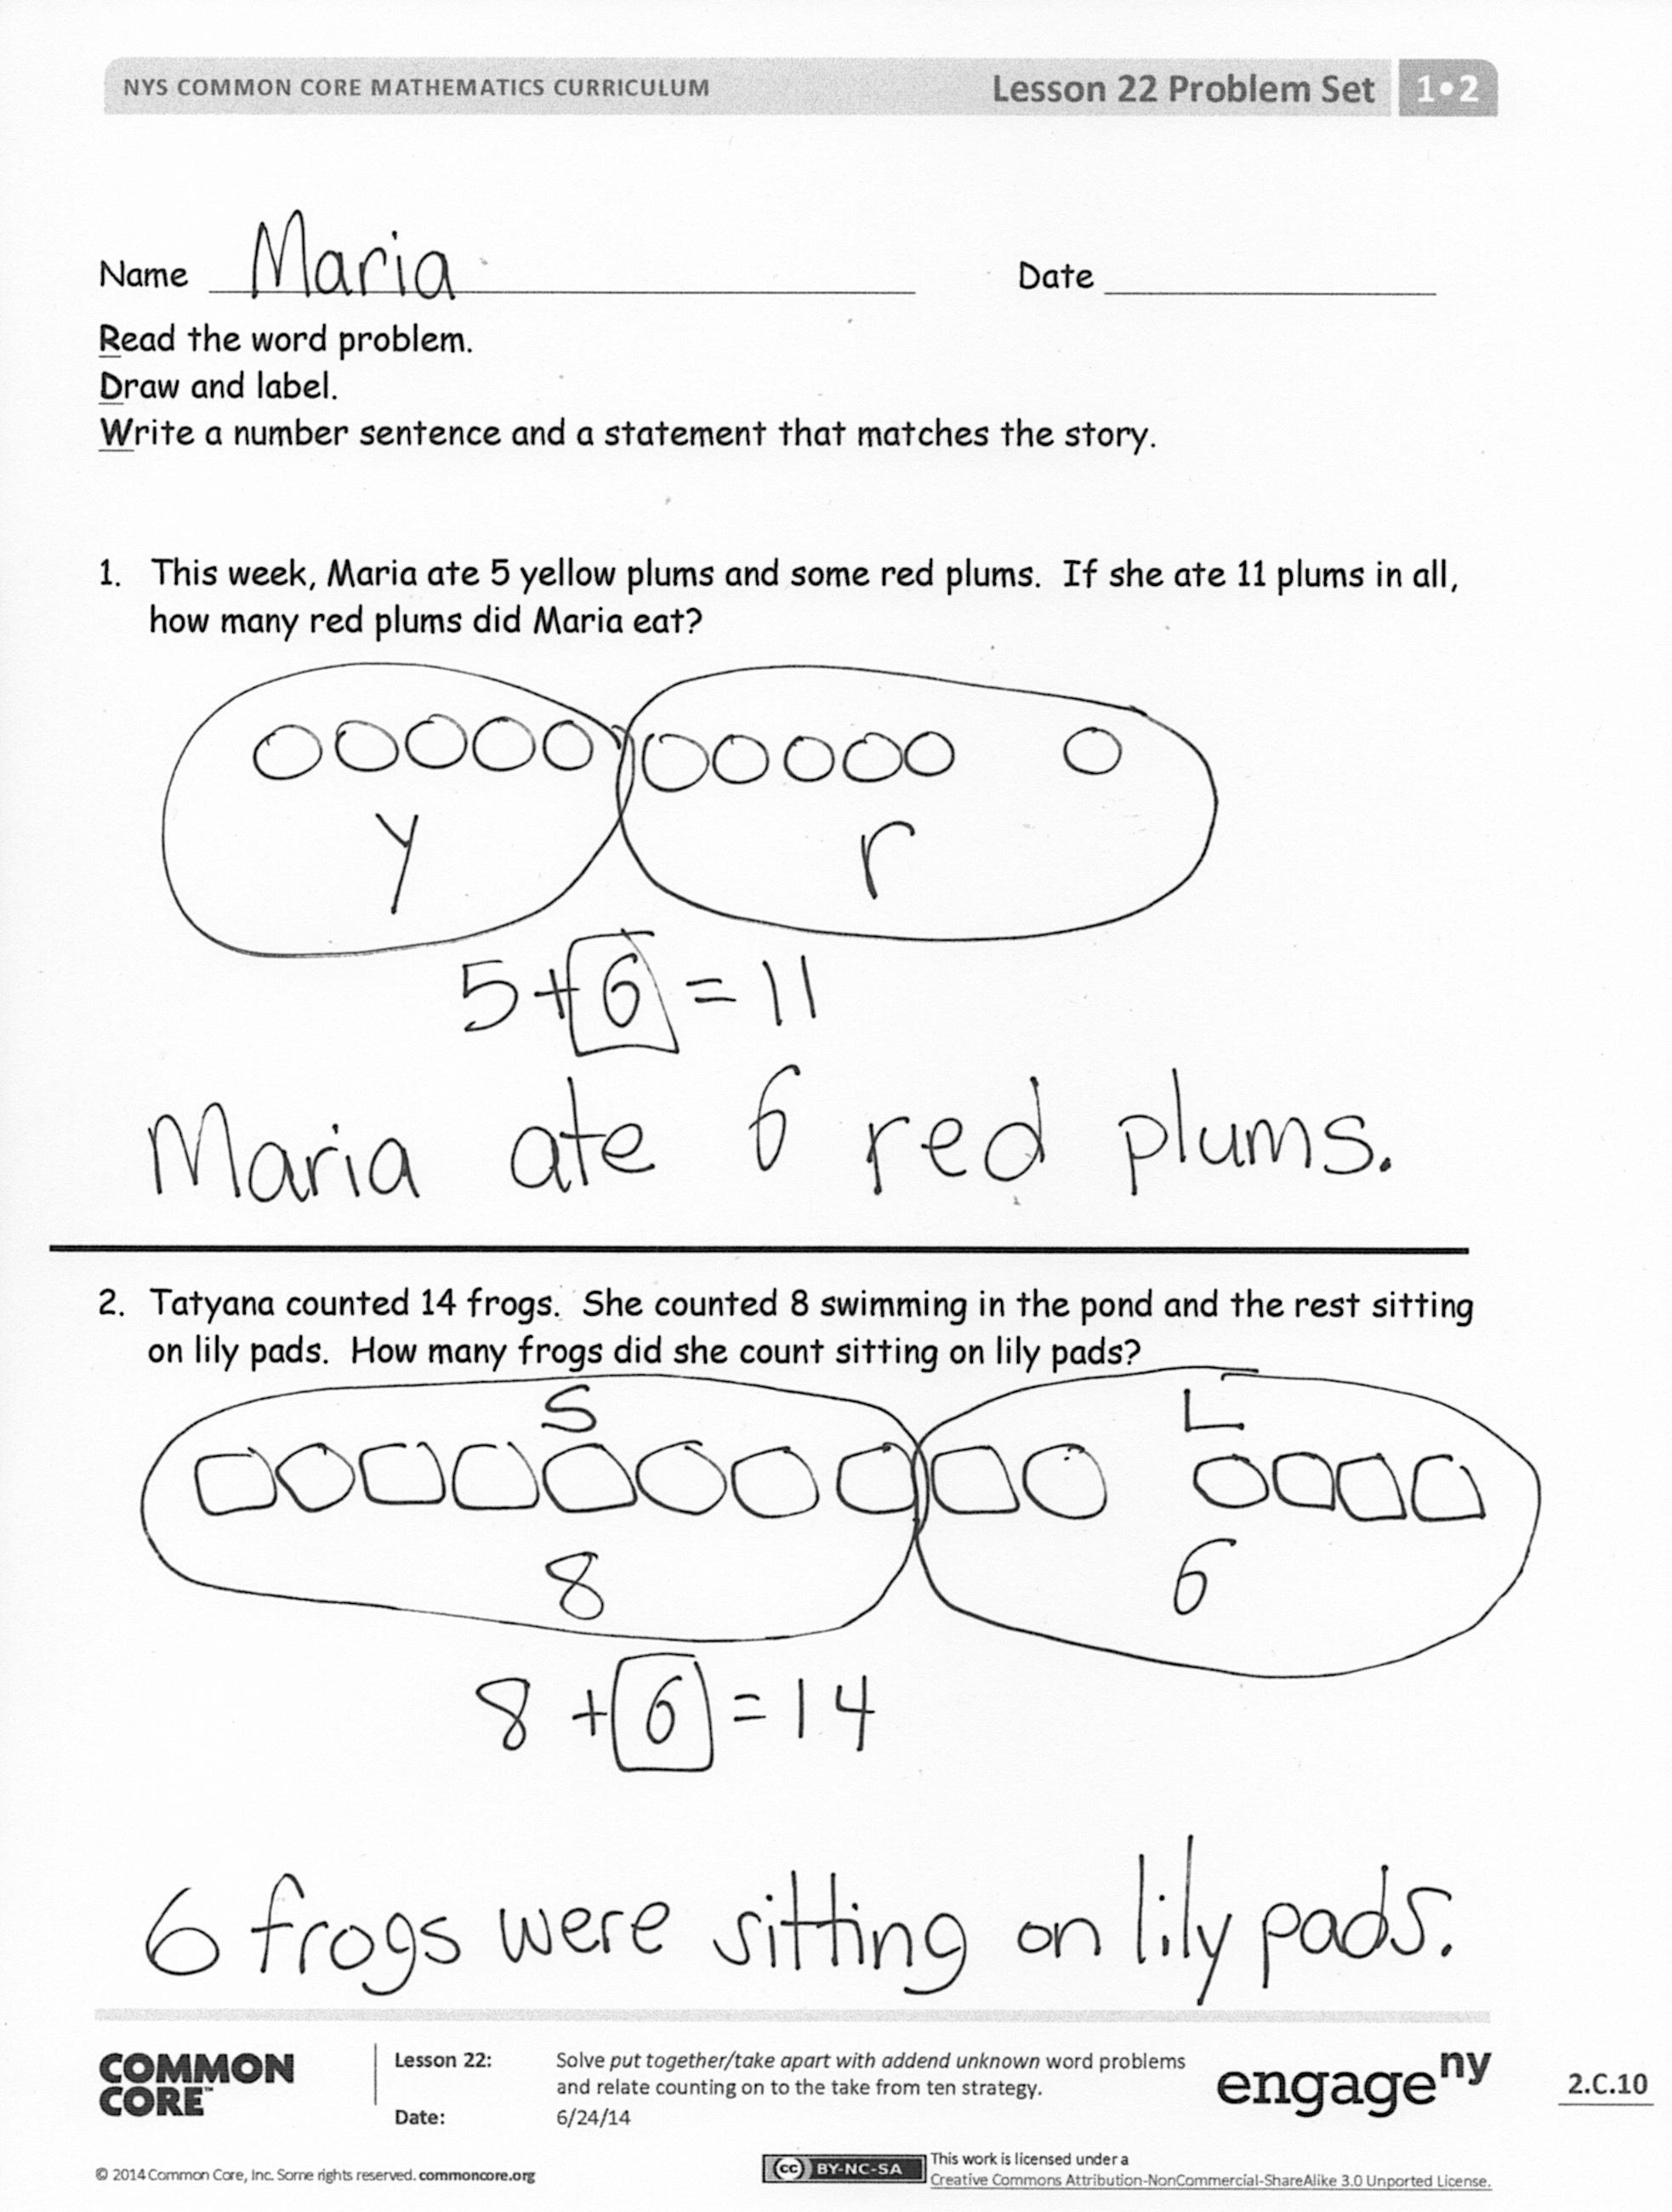 NYS COMMON CORE MATHEMATICS CURRICULUM Lesson 22 Problem Set 1•2
Name Maria Date
Read the word problem.
Draw and label.
Write a number sentence and a statement that matches the story.
1. This week, Maria ate 5 yellow plums and some red plums. If she ate 11 plums in all,
how many red plums did Maria eat?
y r
5+6=11
Maria ate 6 red plums.
2. Tatyana counted 14 frogs. She counted 8 swimming in the pond and the rest sitting
on lily pads. How many frogs did she count sitting on lily pads?
S L
8 6
8+6=14
6 frogs were sitting on lily pads.
COMMON CORE™
Lesson 22: Solve put together/take apart with addend unknown word problems
and relate counting on to the take from ten strategy.
Date: 6/24/14
engageny
2.C.10
© 2014 Common Core, Inc. Some rights reserved. commoncore.org
cc BY-NC-SA
This work is licensed under a
Creative Commons Attribution-NonCommercial-ShareAlike 3.0 Unported License.